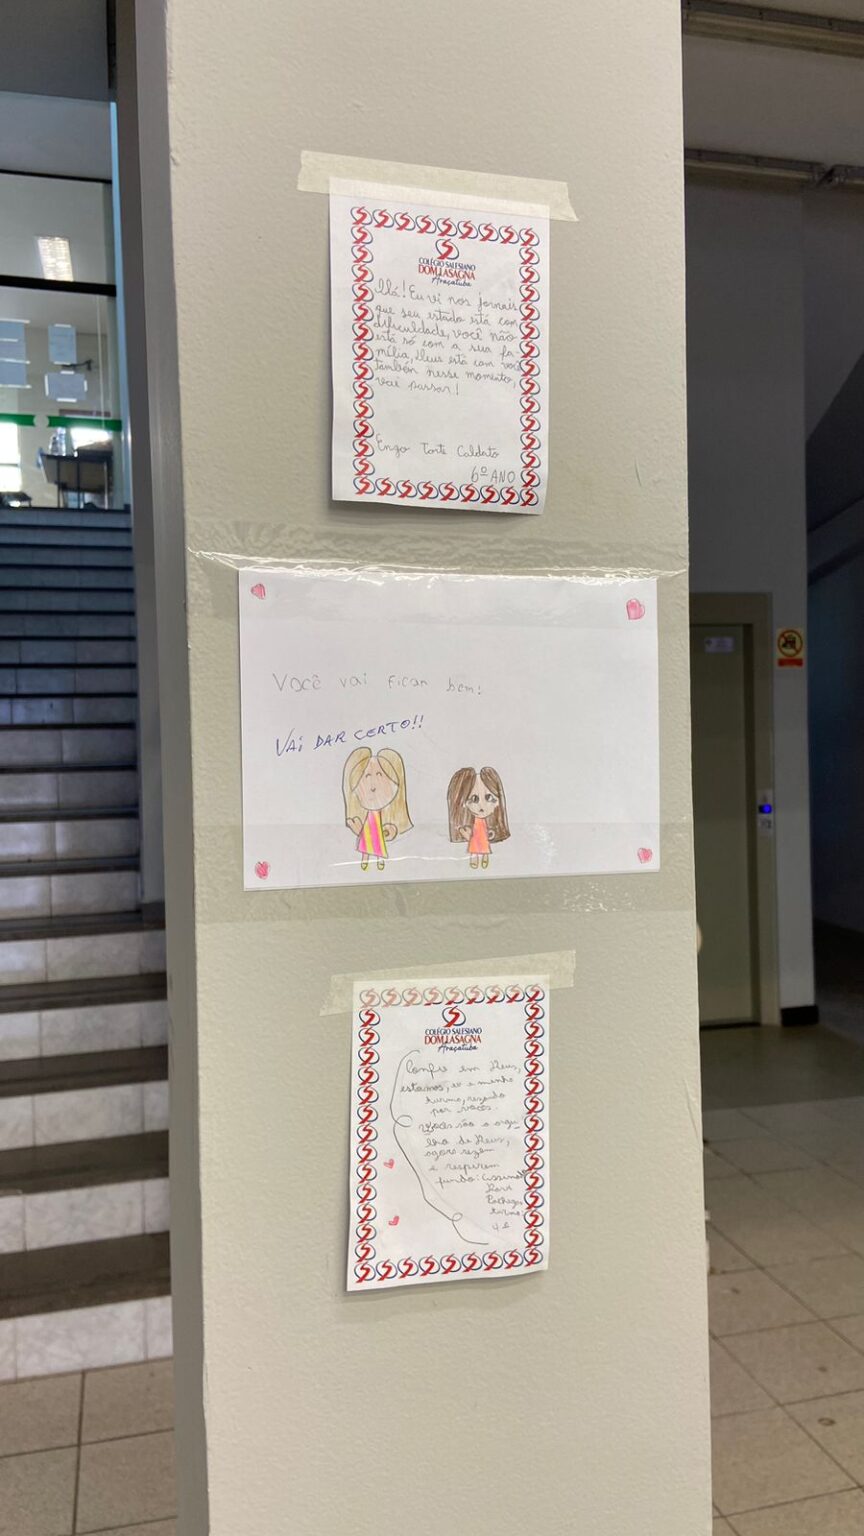 COLÉGIO SALESIANO
DOM LASAGNA
Araçatuba
Olá! Eu vi nos jornais
que seu estado está com
dificuldade, você não
está só com a sua fa-
mília, Deus está com você
também nesse momento,
vai passar!
Enzo
6º ANO
Você vai ficar bem!
VAI DAR CERTO!!
COLÉGIO SALESIANO
DOM LASAGNA
Araçatuba
Confie em Deus,
estamos, eu e minha
turma, rezando
por vocês.
Vocês são o orgu-
lho de Deus,
agora rezem
e respirem
fundo:
turma: